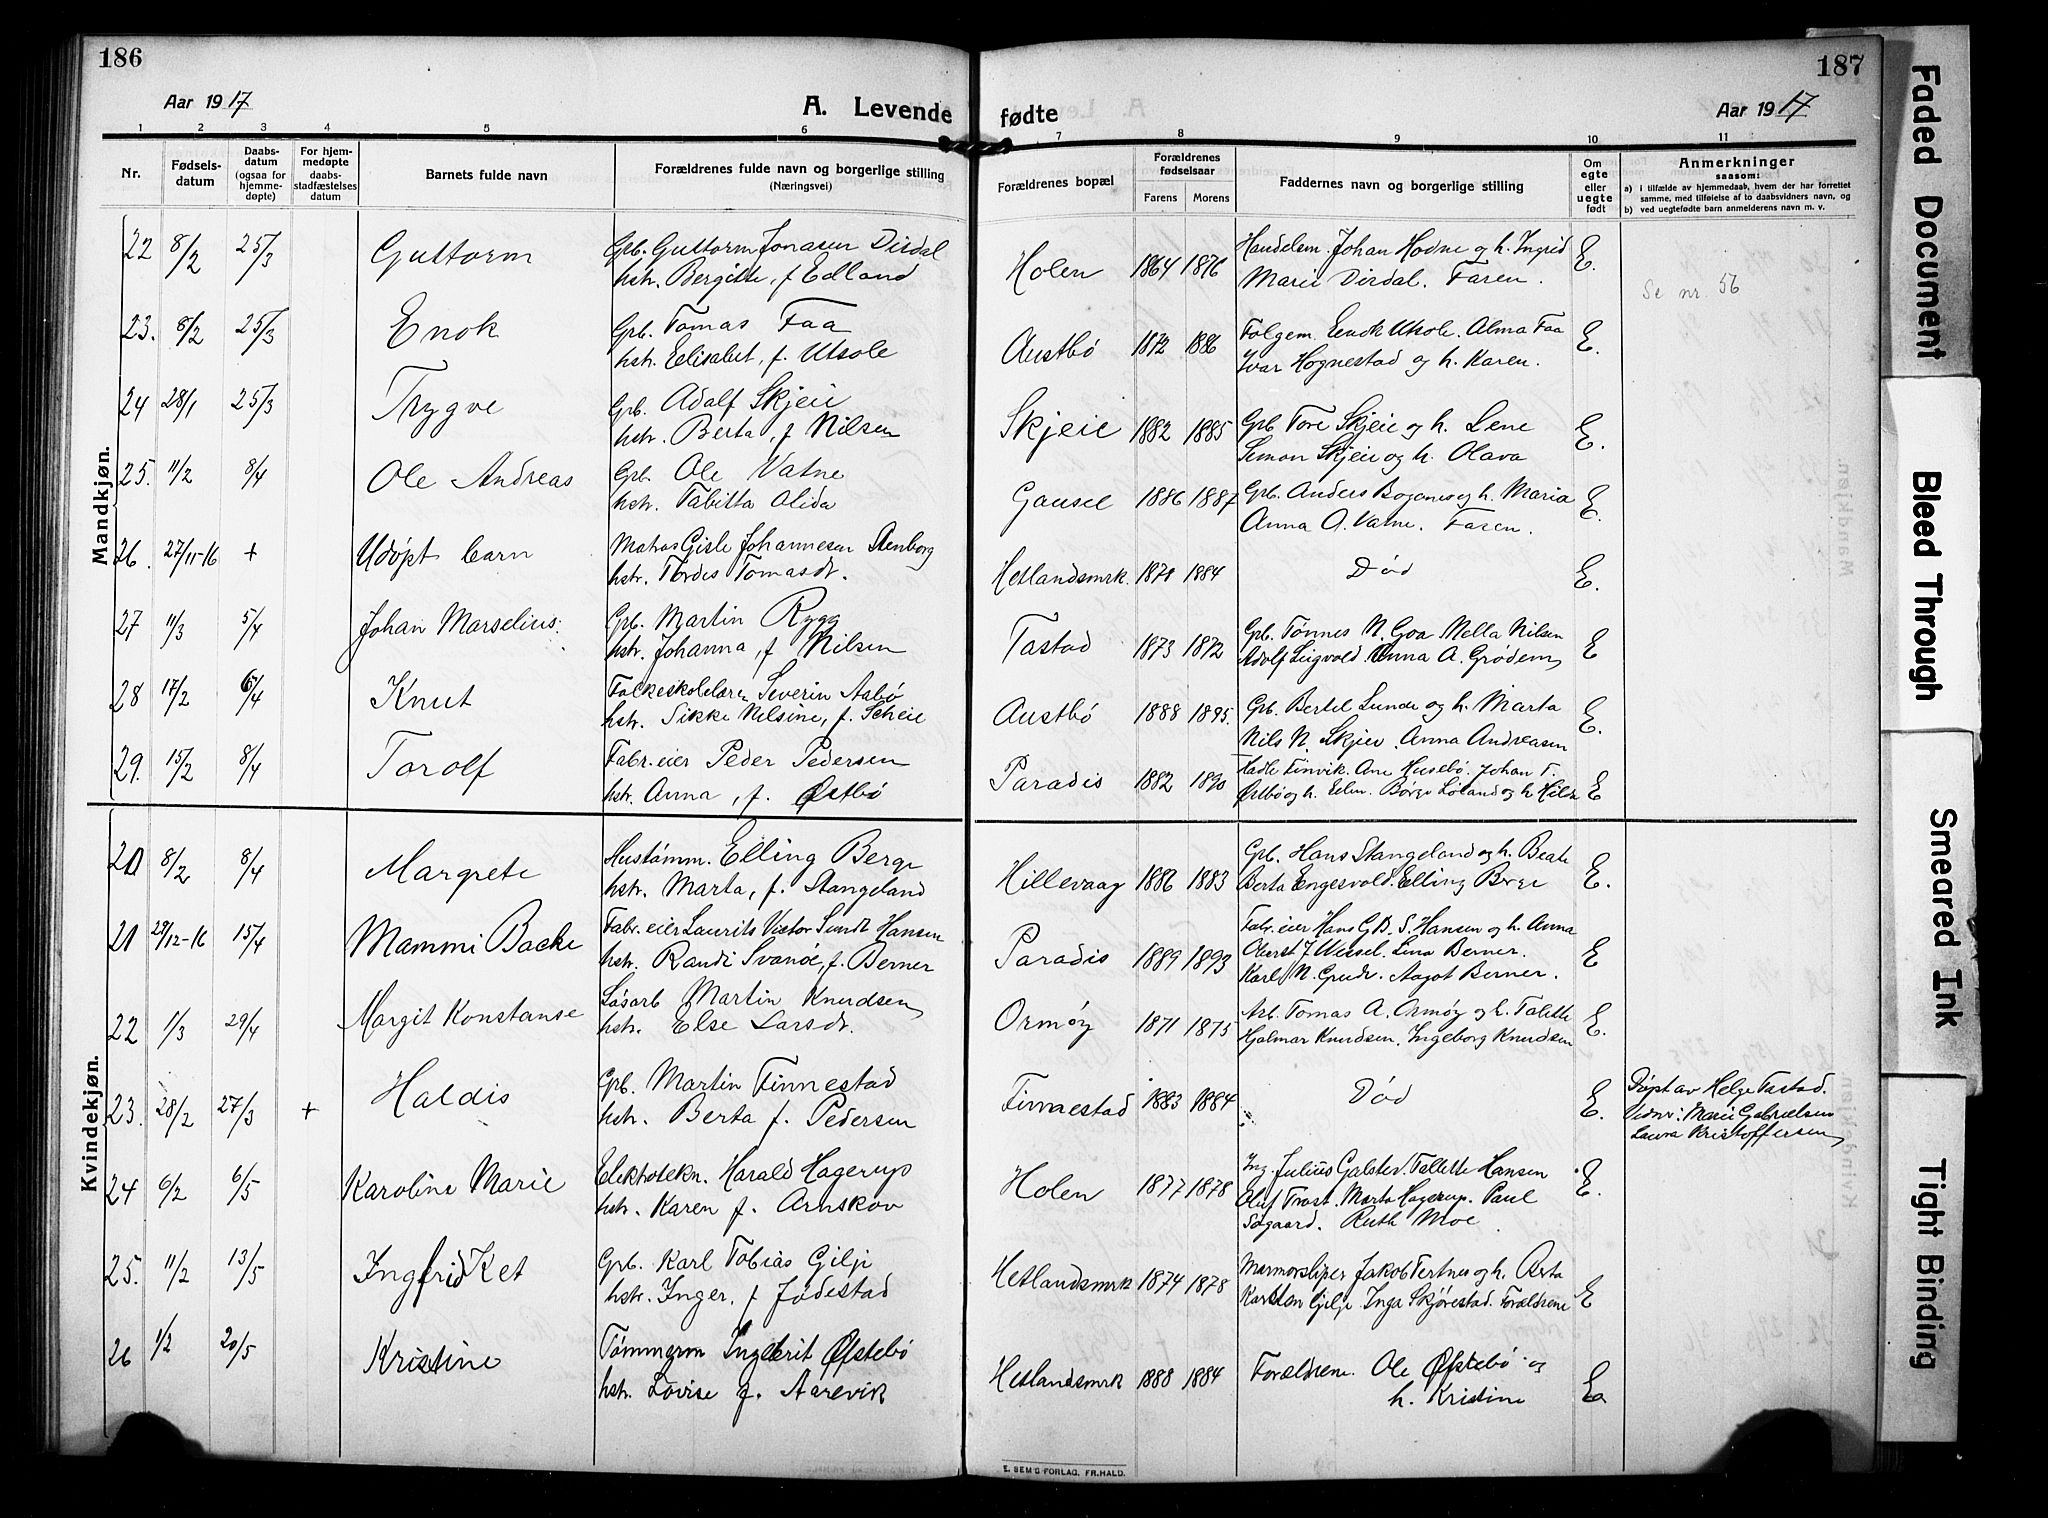 186
187
Aar 1917
A. Levende
fødte
Aar 1917
1 2 3 4 5 6 7 8 9 10 11
Nr.
Fødsels-
datum
Daabs-
datum
(ogsaa for
hjemme-
døpte)
For hjem-
medøpte
daabs-
stadfæstelses
datum
Barnets fulde navn
Forældrenes fulde navn og borgerlige stilling
(Næringsvei)
Forældrenes bopæl
Forældrenes
fødselsaar
Farens Morens
Faddernes navn og borgerlige stilling
Om
egte
eller
uegte
født
Anmerkninger
saasom:
a) i tilfælde av hjemmedaab, hvem der har forrettet
samme, med tilføielse af to daabsvidners navn, og
b) ved uegtefødte barn anmelderens navn m. v.
Mandkjøn.
22 8/2 25/3 Guttorm
Grb. Guttorm Jonasen Dirdal
hstr. Bergitte, f Edland
Holen 1864 1876
Handelsm. Johan Hodne og h. Ingrid
Marie Dirdal. Faren.
E.
Se nr. 56
23. 8/2 25/3 Enok
Grb. Tomas Faa
hstr. Elisabet, f. Utsole
Austbö 1872 1886
Folgem. Enok Utsole. Alma Faa
Ivar Hognestad og h. Karen.
E.
24 28/1 25/3 Trygve
Grb. Adolf Skjeie
hstr. Berta, f Nilsen
Skjeie 1882 1885
Grb Tore Skjeie og h. Lene
Simon Skjeie og h. Olava
E.
25. 11/2 8/4 Ole Andreas
Grb. Ole Vatne
hstr. Tabitta Olida
Gausel 1886 1887
Grb. Anders Boganes og h. Maria
Anna O. Vatne. Faren.
E.
26. 27/11-16 + Udöpt barn
Matros Gisle Johannesen Stenborg
hstr. Tordis Tomasdr.
Hetlandsmrk. 1870 1884
Död
E.
27 11/3 5/4 Johan Marselius.
Grb. Martin Rygg
hstr. Johanna, f Nilsen
Tastad 1873 1872
Grb. Tønnes N. Goa Mella Nilsen
Adolf Sigvald. Anna A. Grödem
E
28 17/2 6/4 Knut
Folkeskolelærer Severin Aabö
hstr. Sikke Nilsine, f. Scheie
Austbö 1888 1895.
Grb. Bertel Lunde og h. Marta
Nils N. Skjeie. Anna Andreasen
E.
29. 15/2 8/4 Torolf
Fabr.eier Peder Pedersen
hstr. Anna, f. Østbö
Paradis 1882 1890
Hadle Finvik. Ane Husebö. Johan T.
Østbö og h. Elen. Börge Löland og h Hilda
E
Kvindekjøn.
20 8/2 8/4 Margrete
Hustömm. Elling Berge
hstr. Marta, f. Stangeland
Hillevaag 1886 1883
Grb. Hans Stangeland og h. Beate
Berta Engesvold. Elling Berge
E.
21 29/12-16 15/4 Mammi Backe
Fabr.eier Laurits Victor Sundt Hansen
hstr. Randi Svanöe, f. Berner
Paradis 1889 1893
Fabr.eier Hans G.B.S. Hansen og h. Anna
Oberst J. Wessel. Lina Berner.
Karl N. Aagot Berner.
E
22 1/3 29/4 Margit Konstanse
Løsarb Martin Knudsen
hstr. Else Larsdr.
Ormöy 1871 1875
Arb. Tomas A. Ormöy og h. Talette
Hjalmar Knudsen. Ingeborg Knudsen
E.
23. 28/2 27/3 + Haldis
Grb. Martin Finnestad
hstr. Berta f. Pedersen
Finnestad 1883 1884
Död
E.
Döpt av Helge Tastad.
Vidner: Marie Gabrielsen
Laura Kristoffersen
24 6/2 6/5 Karoline Marie
Elektrotekn. Harald Hagerup
hstr. Karen f. Arnskov
Holen 1877 1878
Ing. Julius Galster. Tallette Hansen
Oluf Trost. Marta Hagerup. Paul
Søgaard. Ruth Moe.
E.
25. 11/2 13/5 Ingfrid Ket
Grb. Karl Tobias Gilje
hstr. Inger. f Jödestad
Hetlandsmrk 1874 1878
Marmorsliper Jakob Tertnes og h. Berta
Karsten Gilje. Inga Skjörestad. Forældrene
E
26 1/2 20/5 Kristine
Tömmerm Ingebrit Øfstebö
hstr. Lovise f. Aarevik
Hetlandsmrk 1888 1884
Forældrene. Ole Øfstebö og
h. Kristine
E.
E. SEM'S FORLAG, FR.HALD.
Faded Document
Bleed Through
Smeared Ink
Tight Binding